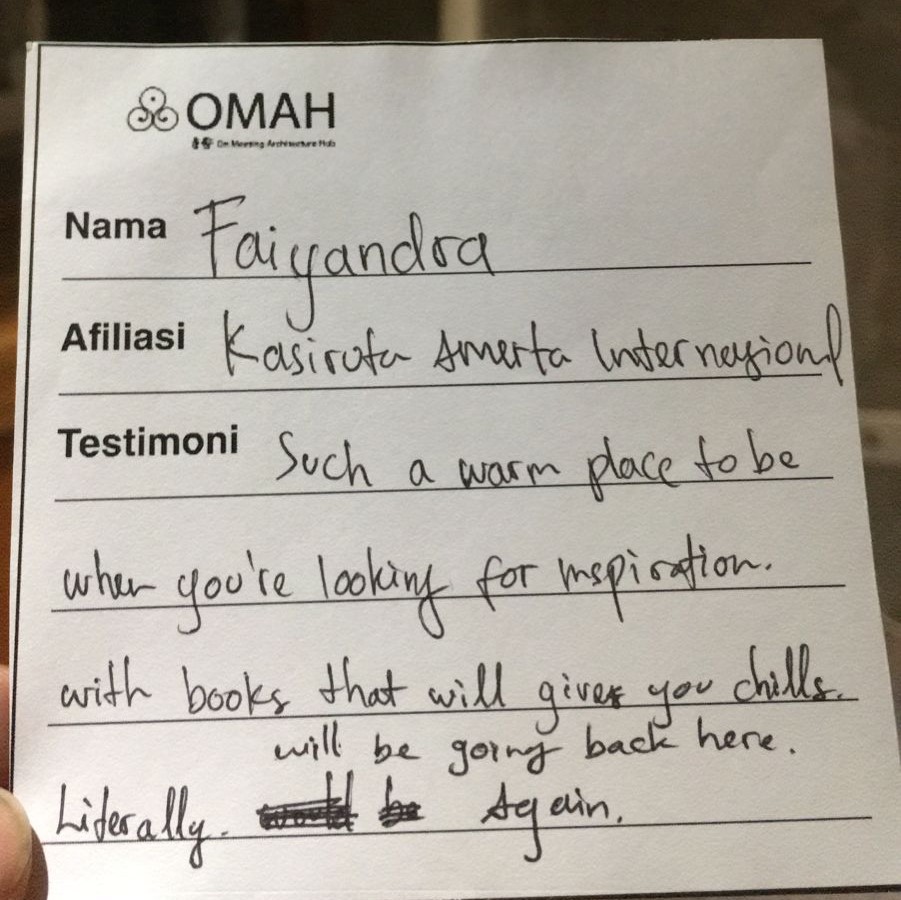 OMAH
On Meaning Architecture Hub
Nama Faiyandra
Afiliasi Kasirota Amerta Internasional
Testimoni Such a warm place to be
when you're looking for inspiration.
with books that will gives you chills.
will be going back here.
Literally. Again.